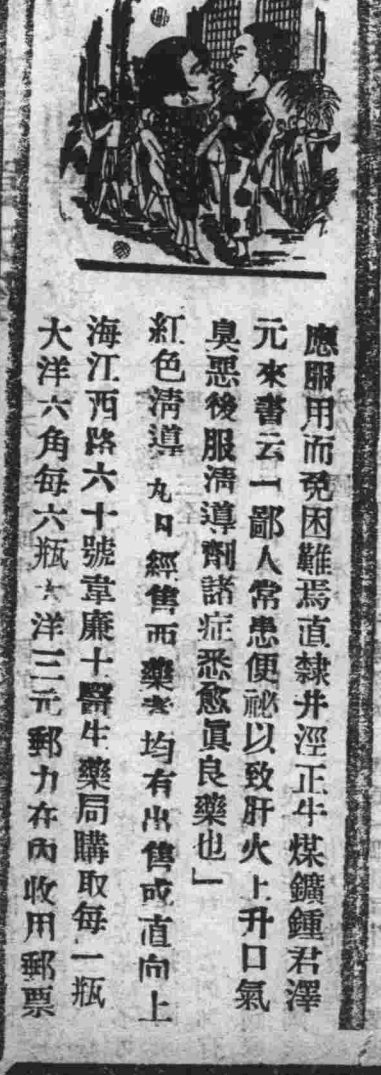 應服用而免困難焉直隸井涇正牛煤鑛鍾君澤
元來書云「鄙人常患便祕以致肝火上升口氣
臭惡後服淸導劑諸症悉愈眞良藥也」
紅色淸導丸凡經售西藥者均有出售或直向上
海江西路六十號韋廉士醫生藥局購取每一瓶
大洋六角每六瓶大洋三元郵力在內收用郵票